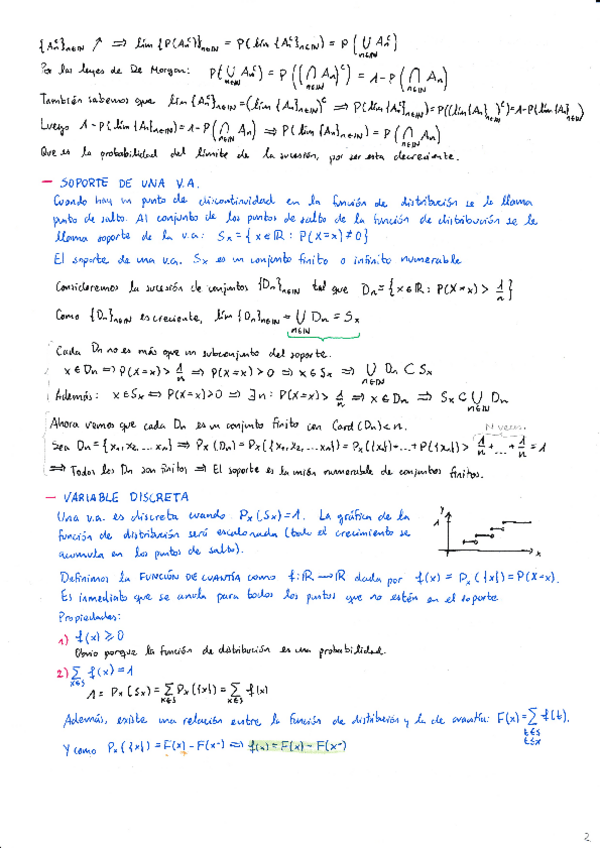 {Aₙᶜ}ₙ∈ℕ ↗ ⟹ lím {P(Aₙᶜ)}ₙ∈ℕ = P(lím {Aₙᶜ}ₙ∈ℕ) = P(⋃ₙ∈ℕ Aₙᶜ)
Por las leyes de De Morgan: P(⋃ₙ∈ℕ Aₙᶜ) = P((⋂ₙ∈ℕ Aₙ)ᶜ) = 1-P(⋂ₙ∈ℕ Aₙ)
También sabemos que lím {Aₙᶜ}ₙ∈ℕ = (lím {Aₙ}ₙ∈ℕ)ᶜ ⟹ P(lím {Aₙᶜ}ₙ∈ℕ) = P((lím {Aₙ}ₙ∈ℕ)ᶜ) = 1-P(lím {Aₙ}ₙ∈ℕ)
Luego 1-P(lím {Aₙ}ₙ∈ℕ) = 1-P(⋂ₙ∈ℕ Aₙ) ⟹ P(lím {Aₙ}ₙ∈ℕ) = P(⋂ₙ∈ℕ Aₙ)
Que es la probabilidad del límite de la sucesión, por ser esta decreciente.
— SOPORTE DE UNA V.A.
Cuando hay un punto de discontinuidad en la función de distribución se le llama
punto de salto. Al conjunto de los puntos de salto de la función de distribución se le
llama soporte de la v.a: Sx = {x ∈ ℝ : P(X=x) ≠ 0}
El soporte de una v.a. Sx es un conjunto finito o infinito numerable
Consideremos la sucesión de conjuntos {Dₙ}ₙ∈ℕ tal que Dₙ = {x ∈ ℝ : P(X=x) > 1/n}
Como {Dₙ}ₙ∈ℕ es creciente, lím {Dₙ}ₙ∈ℕ = ⋃ₙ∈ℕ Dₙ = Sx
Cada Dₙ no es más que un subconjunto del soporte.
x ∈ Dₙ ⟹ P(X=x) > 1/n ⟹ P(X=x) > 0 ⟹ x ∈ Sx ⟹ ⋃ₙ∈ℕ Dₙ ⊂ Sx
Además: x ∈ Sx ⟹ P(X=x) > 0 ⟹ ∃n : P(X=x) > 1/n ⟹ x ∈ Dₙ ⟹ Sx ⊂ ⋃ₙ∈ℕ Dₙ
Ahora vemos que cada Dₙ es un conjunto finito con Card(Dₙ) < n.
N veces
Sea Dₙ = {x₁, x₂, ... xₙ} ⟹ Px(Dₙ) = Px({x₁, x₂, ... xₙ}) = Px({x₁}) + ... + P({xₙ}) > 1/n + ... + 1/n = 1
⟹ Todos los Dₙ son finitos ⟹ El soporte es la unión numerable de conjuntos finitos.
— VARIABLE DISCRETA
Una v.a. es discreta cuando Px(Sx) = 1. La gráfica de la
función de distribución será escalonada (todo el crecimiento se
acumula en los puntos de salto).
y
1
x
Definimos la FUNCIÓN DE CUANTÍA como f: ℝ → ℝ dada por f(x) = Px({x}) = P(X=x).
Es inmediato que se anula para todos los puntos que no estén en el soporte
Propiedades:
1) f(x) ≥ 0
Obvio porque la función de distribución es una probabilidad.
2) ∑x∈S f(x) = 1
1 = Px(Sx) = ∑x∈S Px({x}) = ∑x∈S f(x)
Además, existe una relación entre la función de distribución y la de cuantía: F(x) = ∑ f(t).
t∈S
t≤x
Y como Px({x}) = F(x) - F(x⁻) ⟹ f(x) = F(x) - F(x⁻)
2